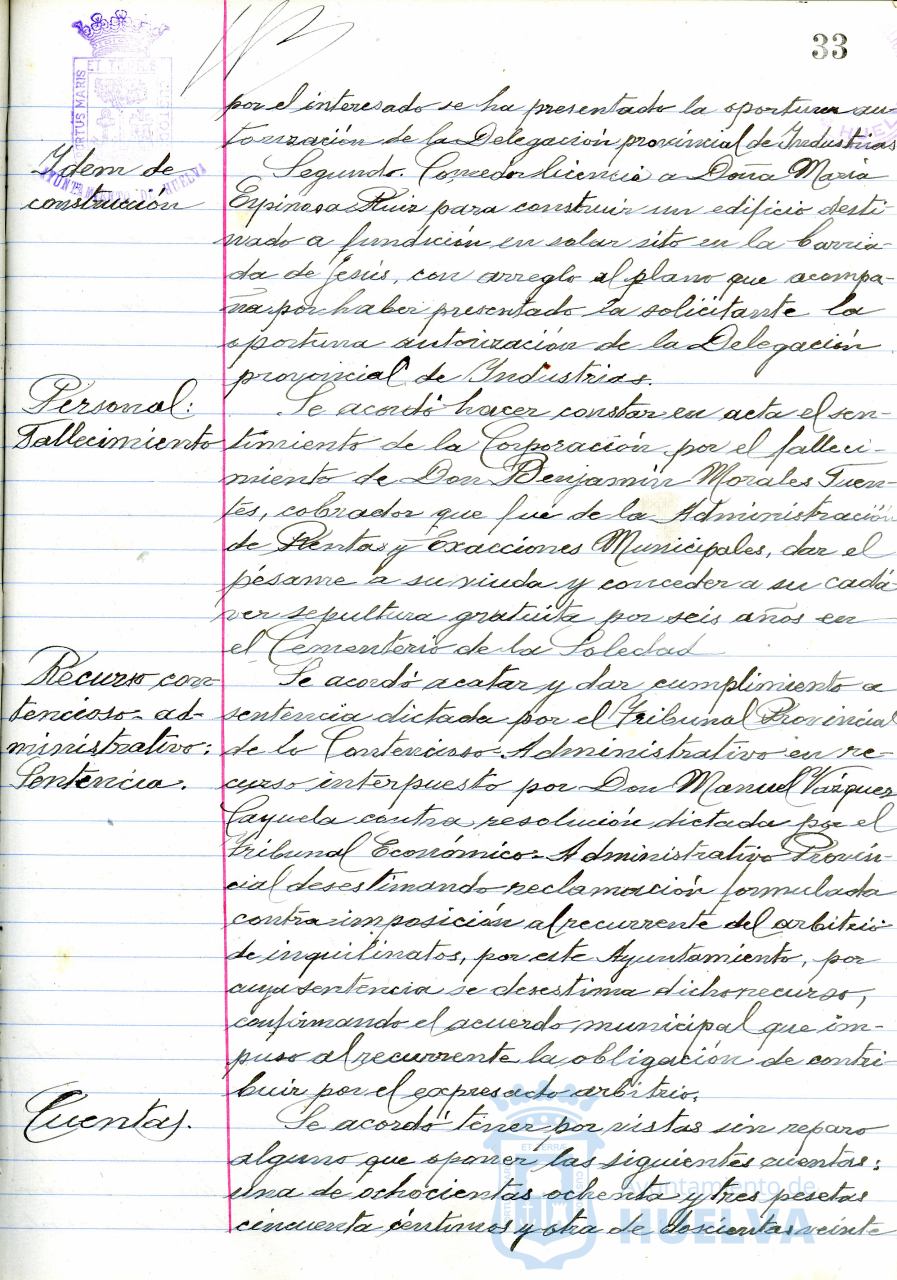 33
por el interesado se ha presentado la oportuna au-
torización de la Delegación provincial de Industrias
Idem de
construcción
Segundo. Conceder licencia a Doña María
Espinosa Ruiz para construir un edificio desti
nado a fundición en solar sito en la barria-
da de Jesús, con arreglo al plano que acompa-
ña por haber presentado la solicitante la
oportuna autorización de la Delegación
provincial de Industrias.
Personal:
Fallecimiento
Se acordó hacer constar en acta el sen-
timiento de la Corporación por el falleci-
miento de Don Benjamín Morales Fuen-
tes, cobrador que fué de la Administración
de Rentas y Exacciones Municipales, dar el
pésame a su viuda y conceder a su cadá-
ver sepultura gratuita por seis años en
el Cementerio de la Soledad
Recurso con-
tencioso-ad-
ministrativo:
Sentencia.
Se acordó acatar y dar cumplimiento a
sentencia dictada por el Tribunal Provincial
de lo Contencioso-Administrativo en re-
curso interpuesto por Don Manuel Vázquez
Cayuela contra resolución dictada por el
Tribunal Económico-Administrativo Provin-
cial desestimando reclamación formulada
contra imposición al recurrente del arbitrio
de inquilinatos, por este Ayuntamiento, por
cuya sentencia se desestima dicho recurso,
confirmando el acuerdo municipal que im-
puso al recurrente la obligación de contri-
buir por el expresado arbitrio.
Cuentas.
Se acordó tener por vistas sin reparo
alguno que oponer las siguientes cuentas:
una de ochocientas ochenta y tres pesetas
cincuenta céntimos y otra de doscientas veinte
AYUNTAMIENTO DE HUELVA
PORTUS MARIS
ET TERRE
CUSTODIA
Ayuntamiento de
HUELVA